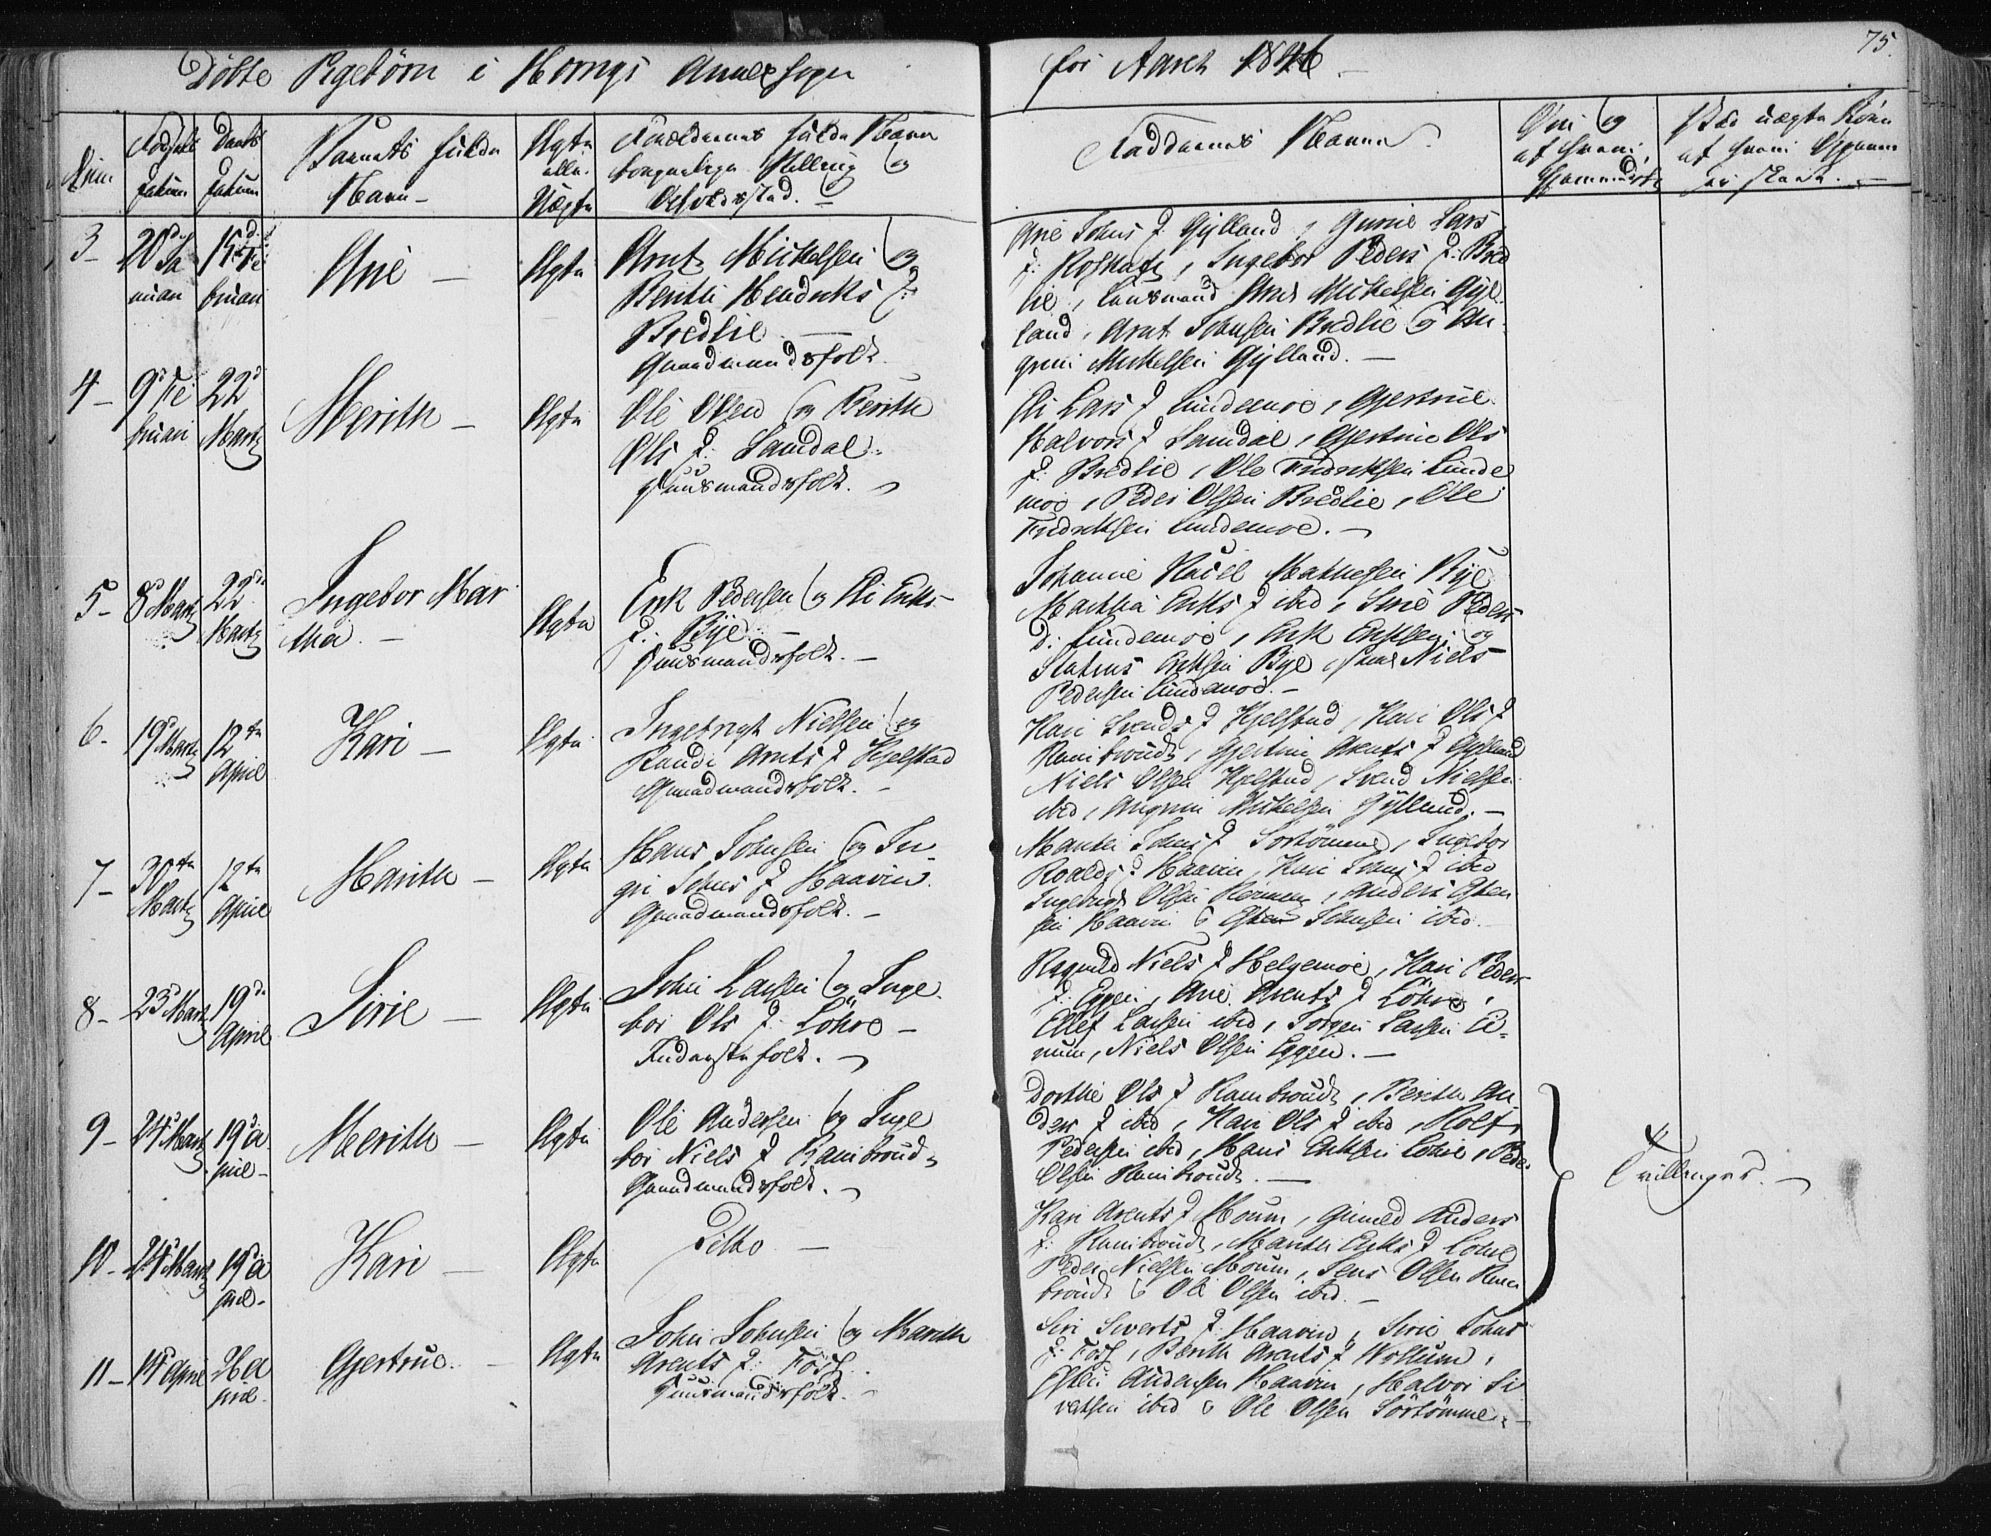 Döbte Pigebörn i Horrigs Annexsogn
for Aaret 1846
75.
Num
Fødsels
Datum
Daabs
Datum
Barnets fulde
Navn
Ægte
eller
Uægte
Forældrenes fulde Navn
borgerlige Stilling og
Opholdsstad.
Faddernes Navne
Om og
af hvem
hjemmedøbt
3
20de Januari
15de Februari
Ane
Ægte
Arnt Mikkelsen og
Berith Hendriks D:
Bredlie
Gaardmandsfolk
Ane Johns D. Gylland, Gurue Lars
D: Rosnatz, Ingebor Peders D: Bred
lie,
land, Arnt Johnsen Bredlie og An
grim Mikkelsen Gylland.
4
9de Februari
22de
Martz
Merith
Ægte
Ole Olsen og Berith
Ols D: Samdal
Huusmandsfolk.
Eli Lars D Lundemoe, Gjertrue
Halvors D Samdal, Gjertrue Ols
D: Bredlie, Ole Fredriksen Lunde
moe, Peder Olsen Bredlie, Ole
Fredriksen Lundemoe.
5
8de Martz
22de
Martz
Ingebor Mar
tha
Ægte
Erik Pedersen og Eli Eriks
D: Bye
Huusmandsfolk.
Johanne Mathesen Bye
Martha Eriks D ibid, Sirie Peders
D: Lundemoe, Erik Eriksen og
Statius Eriksen Bye, Niels
Pedersen Lundemoe.
6
19de Martz
12te
April
Kari
Ægte
Ingebrigt Nielsen og
Randi Arnts D Hjelstad
Gaardmandsfolk.
Kari Svends D Hjelstad, Kari Ols D
Rambroudt, Gjertrue Arents D Gylland
Niels Olsen Hjelstad, Svend Nielsen
ibid, Angrim Mikkelsen Gylland.
7
30te
Martz
12te
April
Marith
Ægte
Hans Johnsen og In
gri Johns D Haavin
Gaardmandsfolk.
Marith Johns D Sortömme, Ingebor
Roalds D Haavin, Kari Johns D ibid
Ingebrigt Olsen, Anders Esten
sen Haavin & Esten Johnsen ibid.
8
23de Martz
19de
April
Sirie
Ægte
John Larsen og Inge
bor Ols D: Löhre
Inderstefolk.
Ragnild Niels D Helgemoe, Kari Peders
D: Eggen, Ane Arents D Löhre,
Ellef Larsen ibid, Jörgen Larsen Ei
num, Niels Olsen Eggen.
9
24de Martz
19de A
pril
Merith
Ægte
Ole Andersen og Inge
bor Niels D Rambroudt
Gaardmandsfolk.
Dorthe Ols D Rambroudt, Berith An
ders D ibid, Kari Ols D ibid, Rolf
Pedersen ibid, Hans Eriksen Löhre, Peder
Olsen Rambroudt.
Tvillinger.
10
24de Martz
19de A
pril
Kari
Ægte
Ditto
Kari Arents D Moum, Gunild Anders
D: Rambroudt, Marith Eriks D Löhre
Peder Nielsen Moum, Jens Olsen Ram
broudt & Ole Olsen ibid.
11
14de April
26 A
pril
Gjertrue
Ægte
John Johnsen og Marith
Arents D: Foss
Huusmandsfolk.
Siri Siverts D: Haavin, Sirie Johns
D: Foss, Berith Arents D Wollum,
Esten Andersen Haavin, Halvor Si
vertsen ibid & Ole Olsen Sörtömme.